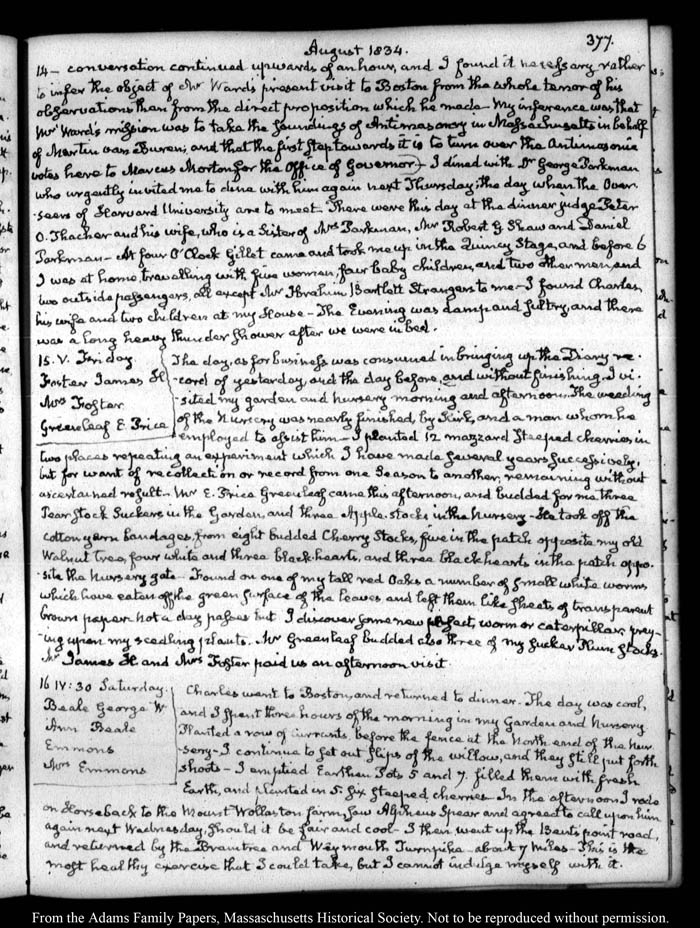 377.
August 1834.
14 — conversation continued upwards of an hour, and I found it necessary rather
to infer the object of Mr Ward's present visit to Boston from the whole tenor of his
observations than from the direct proposition which he made — My inference was that
Mr Ward's mission was to take the soundings of Antimasonry in Massachusetts in behalf
of Martin van Buren; and that the first step towards it is to turn over the Antimasonic
votes here to Marcus Morton for the Office of Governor — I dined with Dr George Parkman
who urgently invited me to dine with him again next Thursday; the day when the Over-
-seers of Harvard University are to meet — There were this day at the dinner judge Peter
O. Thacher and his wife, who is a Sister of Mrs Parkman, Mr Robert G Shaw and Daniel
Parkman — At four O'Clock Gillet came and took me up in the Quincy Stage, and before 6
I was at home, travelling with five women, four baby children, and two other men, and
two outside passengers, all except Mr Ibrahim Bartlett Strangers to me — I found Charles,
his wife and two children at my House — The Evening was damp and sultry, and there
was a long heavy thunder shower after we were in bed.
15. V. Friday. The day, as for business was consumed in bringing up the Diary re-
Foster James H -cord of yesterday, and the day before, and without finishing. I vi-
Mrs Foster -sited my garden and nursery morning and afternoon. The weeding
Greenleaf E Price of the Nursery was nearly finished, by Kirk, and a man whom he
employed to assist him — I planted 12 mazzard steeped cherries in
two places repeating an experiment which I have made several years successively,
but for want of recollection or record from one Season to another, remaining without
ascertained result — Mr E. Price Greenleaf came this afternoon, and budded for me three
Pear stock Suckers in the Garden, and three Apple-stocks in the Nursery — He took off the
cotton yarn bandages, from eight budded Cherry Stocks, five in the patch opposite my old
Walnut tree, four white and three black-hearts, and three black hearts in the patch oppo-
-site the Nursery gate — Found on one of my tall red Oaks a number of small white worms
which have eaten off the green surface of the leaves, and left them like sheets of transparent
brown paper. Not a day passes but I discover some new insect, worm or caterpillar, prey-
-ing upon my seedling plants. Mr Greenleaf budded also three of my sucker Plum stocks.
Mr James H. and Mrs Foster paid us an afternoon visit.
16 IV:30 Saturday. Charles went to Boston, and returned to dinner. The day was cool,
Beale George W and I spent three hours of the morning in my Garden and Nursery
Ann Beale Planted a row of currants, before the fence at the North end of the Nur-
Emmons -sery — I continue to set out slips of the willow, and they still put forth
Mrs Emmons shoots — I emptied Earthen Pots 5 and 7. filled them with fresh
Earth, and planted in 5. six steeped cherries. In the afternoon I rode
on Horseback to the Mount Wollaston farm, saw Alpheus Spear and agreed to call upon him
again next Wednesday, should it be fair and cool — I then went up the Bents point road,
and returned by the Braintree and Weymouth Turnpike — about 7 miles — This is the
most healthy exercise that I could take, but I cannot indulge myself with it.
From the Adams Family Papers, Massachusetts Historical Society. Not to be reproduced without permission.